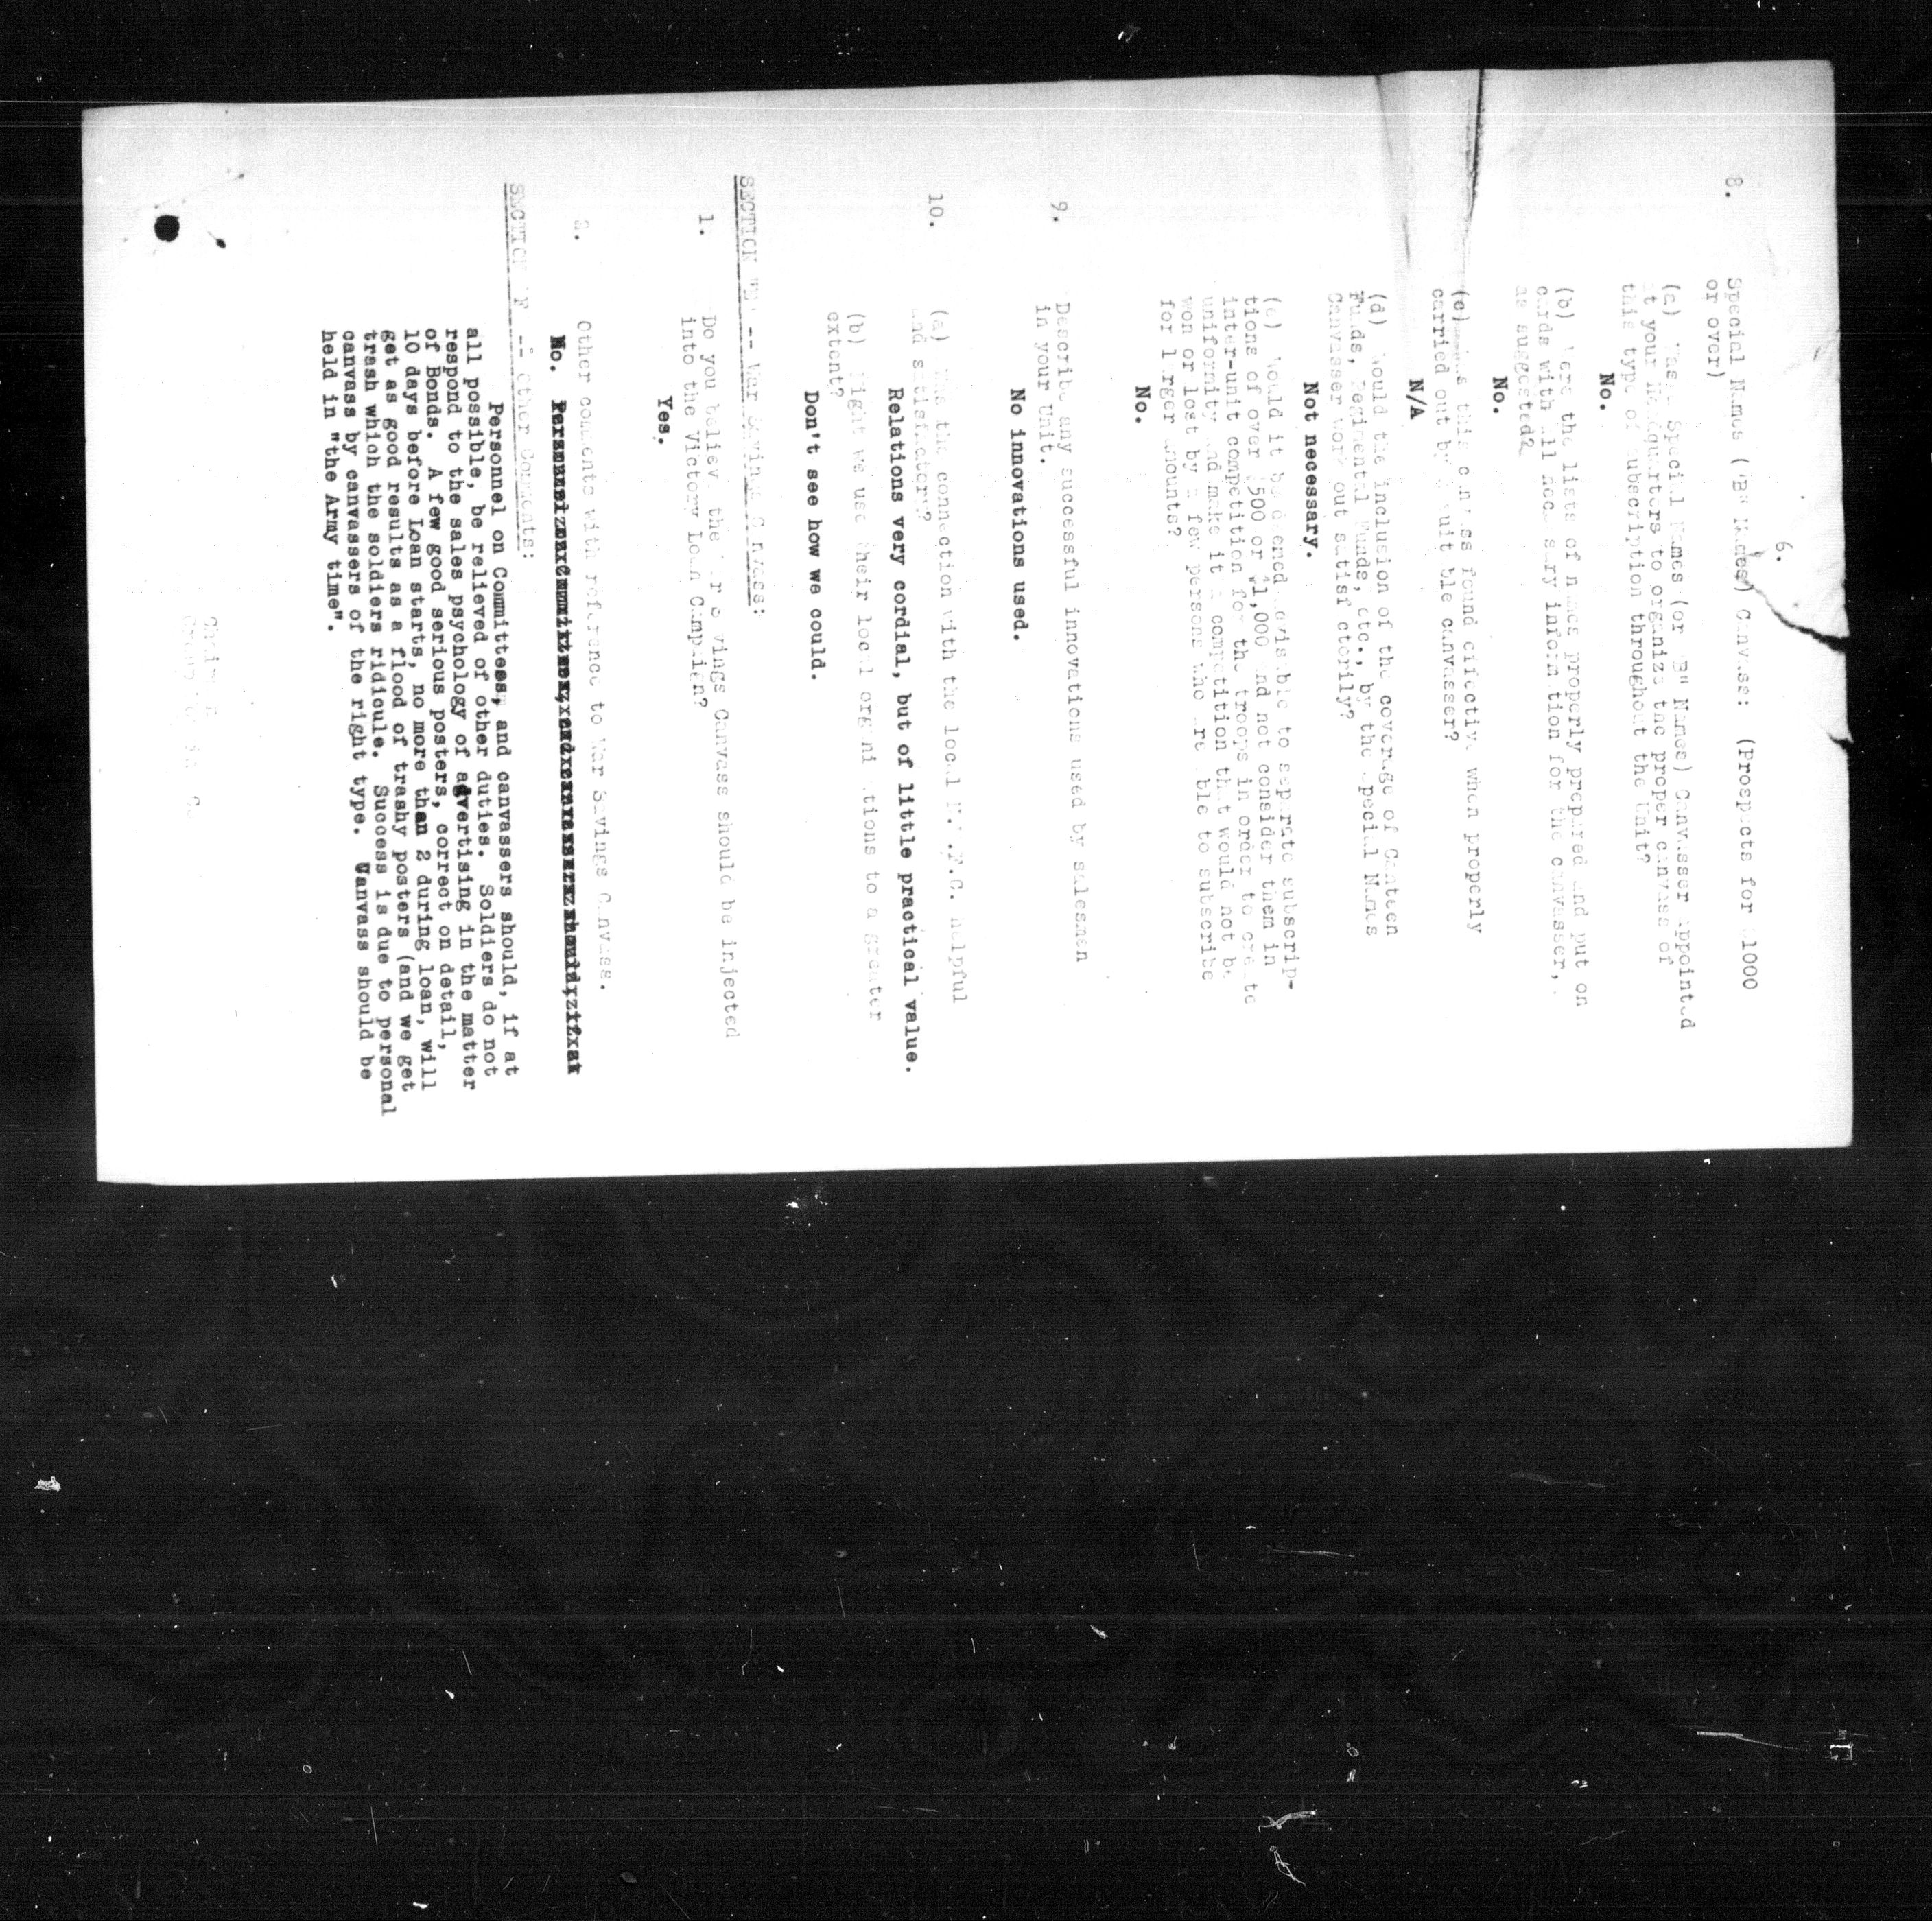 6.
8. Special Names ("B" Names) Canvass: (Prospects for $1000
or over)
(a) Was a Special Names (or "B" Names) Canvasser appointed
at your Headquarters to organize the proper canvass of
this type of subscription throughout the Unit?
No.
(b) Were the lists of names properly prepared and put on
cards with all necessary information for the canvasser,
as suggested?
No.
(c) Was this canvass found effective when properly
carried out by suitable canvasser?
N/A
(d) Would the inclusion of the coverage of Canteen
Funds, Regimental Funds, etc., by the Special Names
Canvasser work out satisfactorily?
Not necessary.
(e) Would it be deemed advisable to separate subscrip-
tions of over $500 or $1,000 and not consider them in
inter-unit competition for the troops in order to create
uniformity and make it a competition that would not be
won or lost by a few persons who are able to subscribe
for larger amounts?
No.
9. Describe any successful innovations used by salesmen
in your Unit.
No innovations used.
10. (a) Was the connection with the local N.W.F.C. helpful
and satisfactory?
Relations very cordial, but of little practical value.
(b) Might we use their local organizations to a greater
extent?
Don't see how we could.
SECTION "E" -- War Savings Canvass:
1. Do you believe the War Savings Canvass should be injected
into the Victory Loan Campaign?
Yes.
2. Other comments with reference to War Savings Canvass.
No.
SECTION "F" -- Other Comments:
Personnel on Committees, and canvassers should, if at
all possible, be relieved of other duties. Soldiers do not
respond to the sales psychology of advertising in the matter
of Bonds. A few good serious posters, correct on detail,
10 days before Loan starts, no more than 2 during loan, will
get as good results as a flood of trashy posters (and we get
trash which the soldiers ridicule. Success is due to personal
canvass by canvassers of the right type. Canvass should be
held in "the Army time".